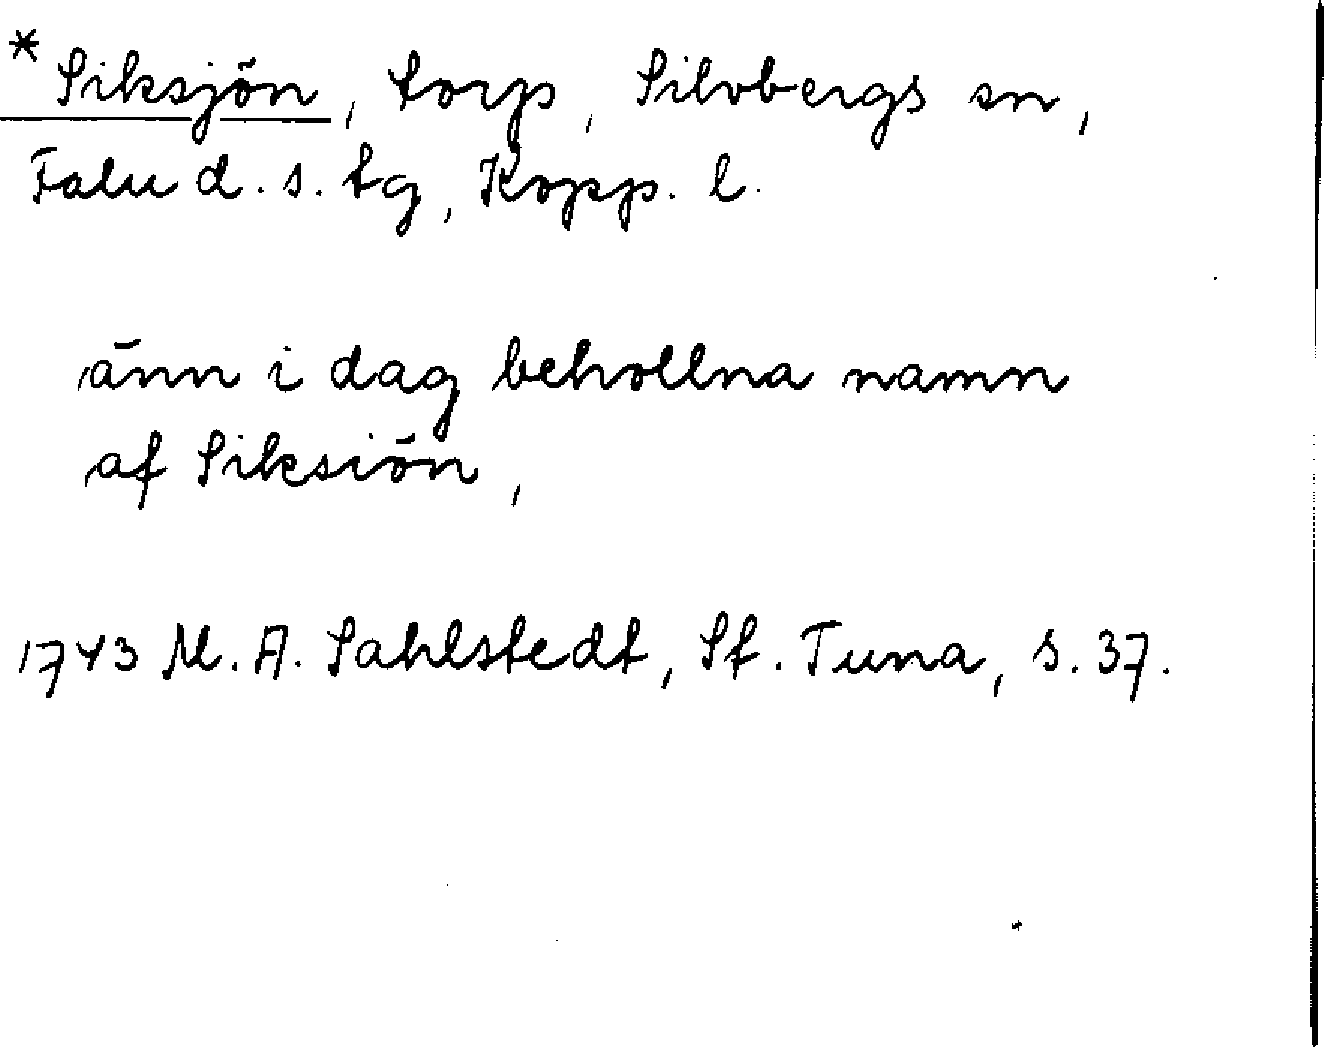 * Siksjön, torp, Silvbergs sn,
Falu d. s. tg, Kopp. l.
änn i dag behollna namn
af Siksiön,
1743 M. A. Sahlstedt, St. Tuna, s. 37.